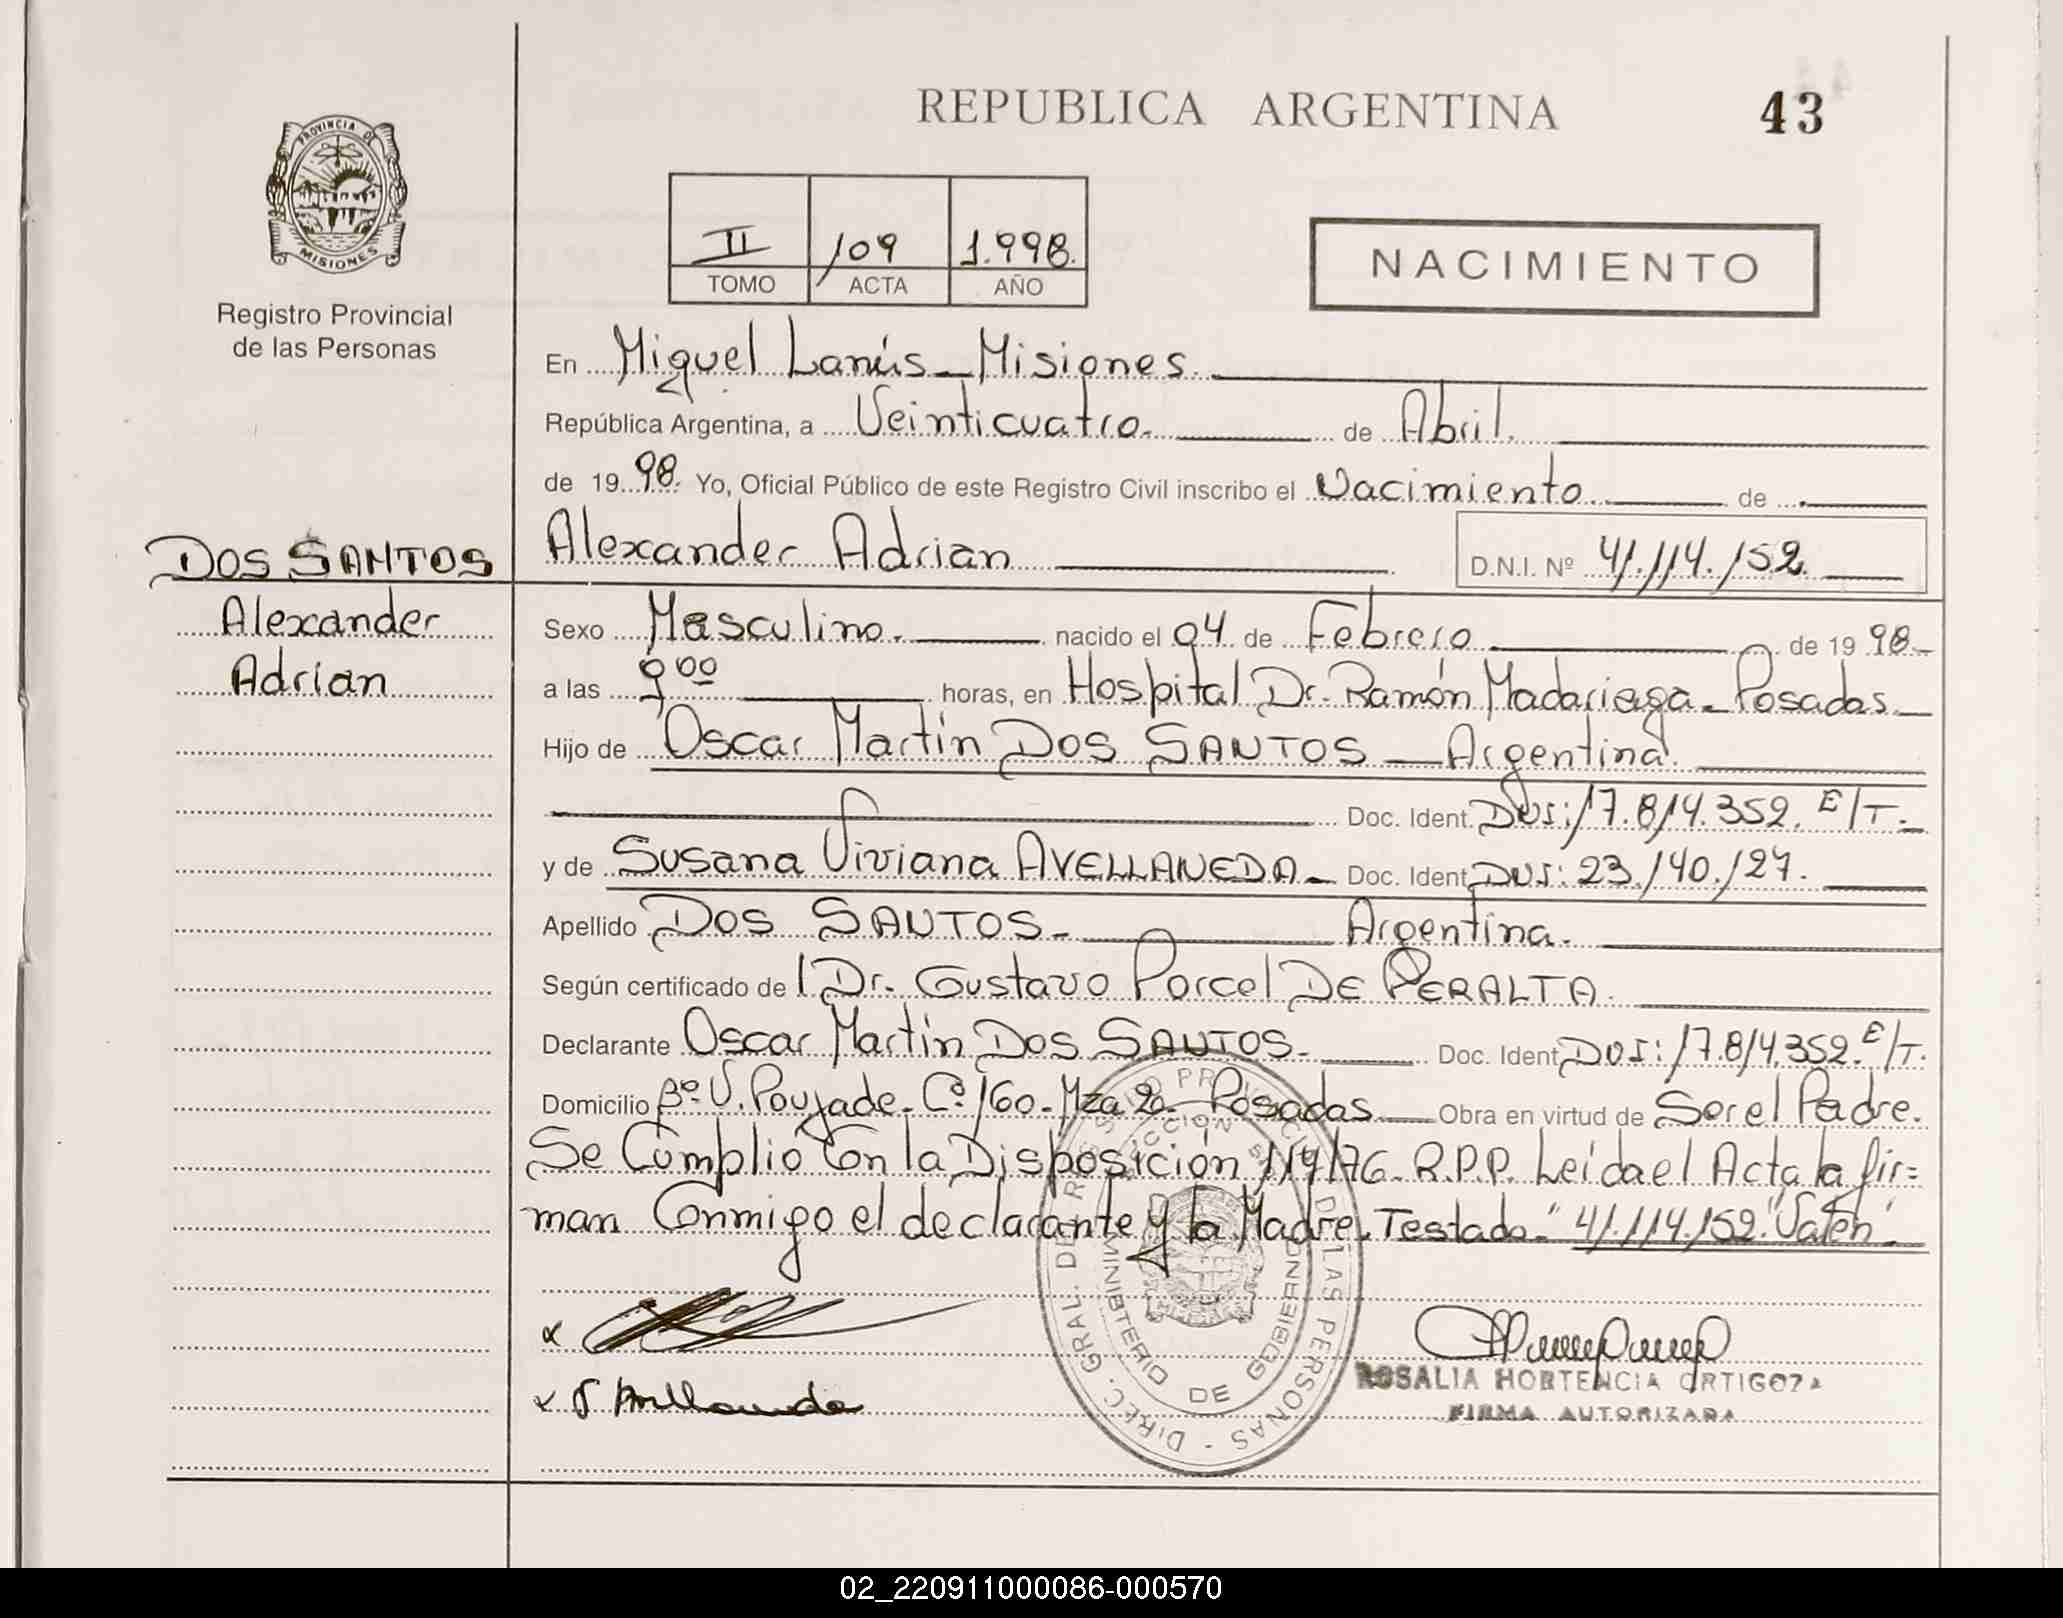 REPUBLICA ARGENTINA
43
PROVINCIA DE
MISIONES
Registro Provincial
de las Personas
II 109 1.998.
TOMO ACTA AÑO
NACIMIENTO
En Miguel Lanús - Misiones.
República Argentina, a Veinticuatro. de Abril.
de 19 98. Yo, Oficial Público de este Registro Civil inscribo el Nacimiento de
DOS SANTOS
Alexander
Adrian
Alexander Adrian
D.N.I. Nº 41.114.152.
Sexo Masculino. nacido el 04 de Febrero de 19 98.
a las 9 00 horas, en Hospital Dr. Ramón Madariaga - Posadas.
Hijo de Oscar Martín DOS SANTOS - Argentina.
Doc. Ident. DNI: 17.814.352. E/T.
y de Susana Viviana AVELLANEDA - Doc. Ident. DNI: 23.140.127.
Apellido DOS SANTOS - Argentina.
Según certificado de l Dr. Gustavo Porcel DE PERALTA.
Declarante Oscar Martín DOS SANTOS. Doc. Ident. DNI: 17.814.352. E/T.
Domicilio Bº V. Poujade - Cª 160 - Mza 2. Posadas Obra en virtud de Ser el Padre.
Se Cumplió con la Disposición 119/76 - R.P.P. Leída el Acta la fir=
man Conmigo el declarante y la Madre. Testado "41.114.152." Valen".
DIREC. GRAL. DE REGISTRO PROVINCIAL DE LAS PERSONAS
MINISTERIO DE GOBIERNO
x
x S Avellaneda
ROSALIA HORTENCIA ORTIGOZA
FIRMA AUTORIZADA
02_220911000086-000570